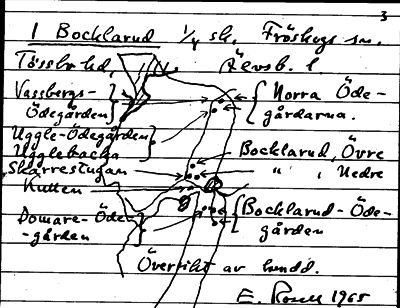 3
1 Bocklarud 1/4 sk. Fröskogs sn.
Tössbo hd, Älvsb. l.
Vassbergs-
Ödegården
Norra Öde-
gårdarna.
Uggle-Ödegården
Ugglebacka
Skärrestugan
Kutten
Bocklarud, Övre
" " , Nedre
Domare-Öde-
-gården
Bocklarud-Öde-
gården
Översikt av
E. Rosell 1965